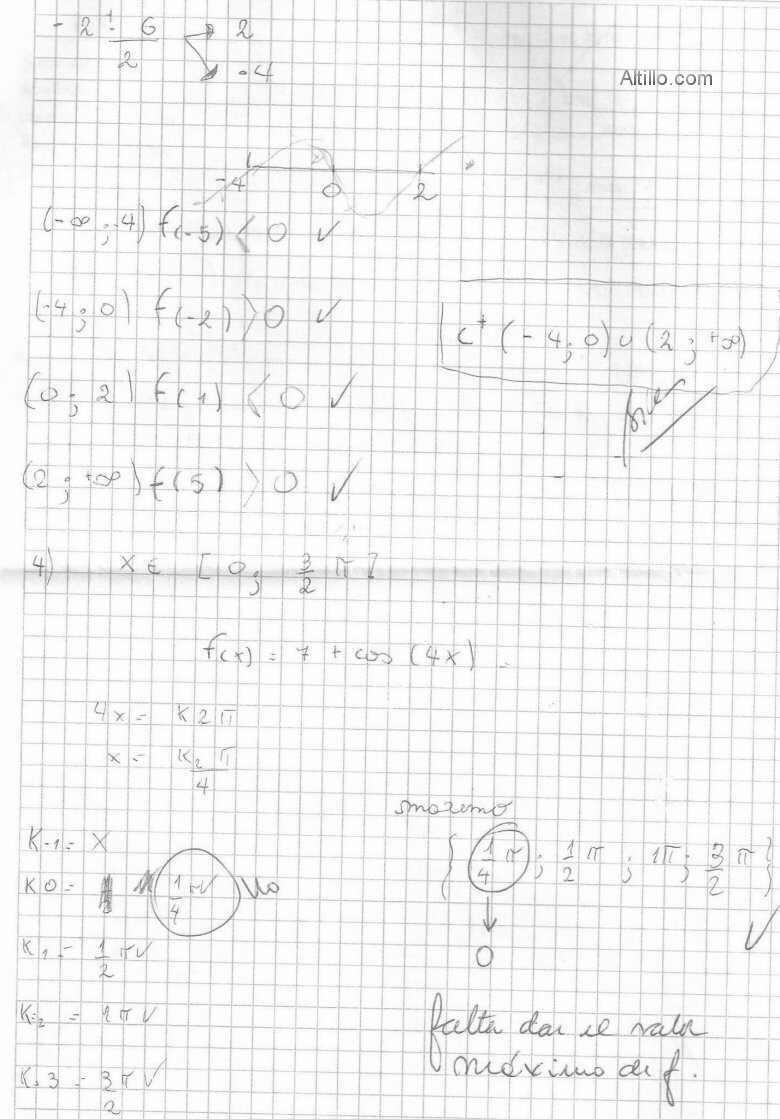 - 2 ± 6 / 2 → 2
→ -4
Altillo.com
-4 0 2
(-∞ ; -4) f(-5) < 0 ✓
(-4 ; 0) f(-2) > 0 ✓
C⁺ (-4 ; 0) ∪ (2 ; +∞)
(0 ; 2) f(1) < 0 ✓
(2 ; +∞) f(5) > 0 ✓
4) X ∈ [0 ; 3/2 π]
f(x) = 7 + cos (4x)
4x = K 2 π
x = K2 π / 4
K-1 = X
K0 = 1/4 π ✓ No
K1 = 1/2 π ✓
K=2 = 1 π ✓
K=3 = 3/2 π ✓
{ 1/4 π ; 1/2 π ; 1π ; 3/2 π }
↓
0
✓
falta dar el valor
máximo de f.